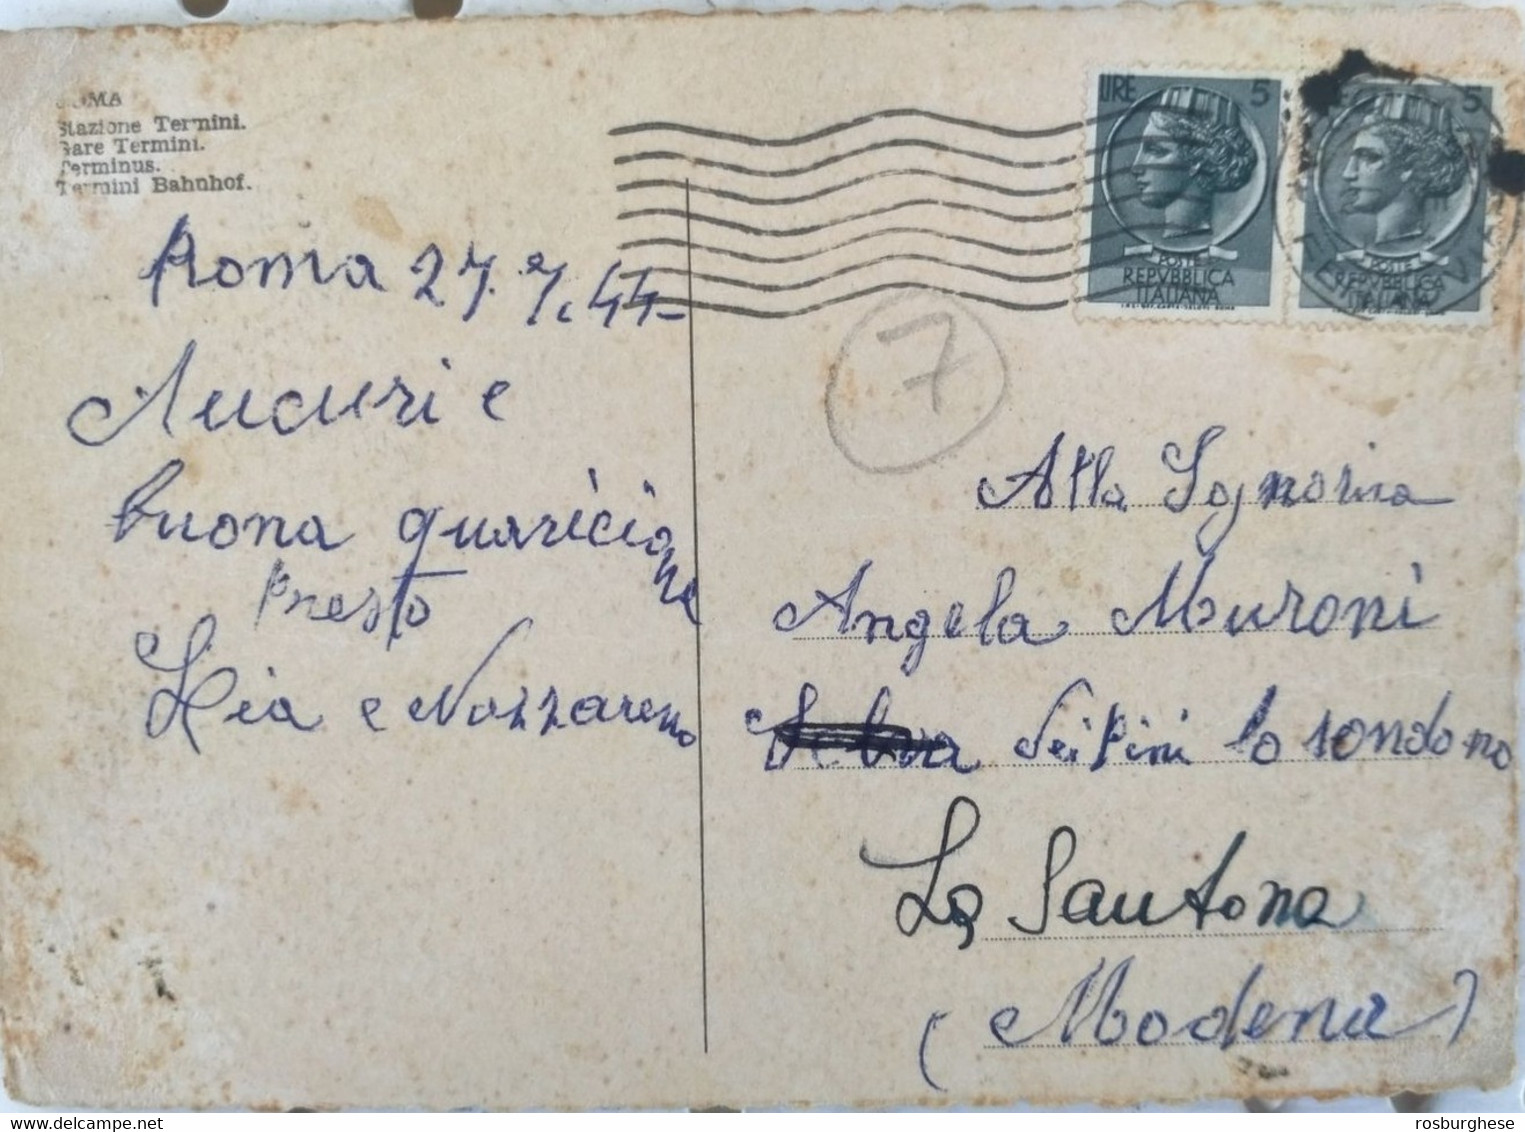 ROMA
Stazione Termini.
Gare Termini.
Terminus.
Termini Bahnhof.
Roma 27.7.44
Auguri e
buona guaricione
presto
Lia e Nazzareno
LIRE 5
POSTE
REPVBBLICA
ITALIANA
5
POSTE
REPVBBLICA
ITALIANA
7
Alla Sognorina
Angela Muroni
Sei Pini lo
La Santona
(Modena)
rosburghese